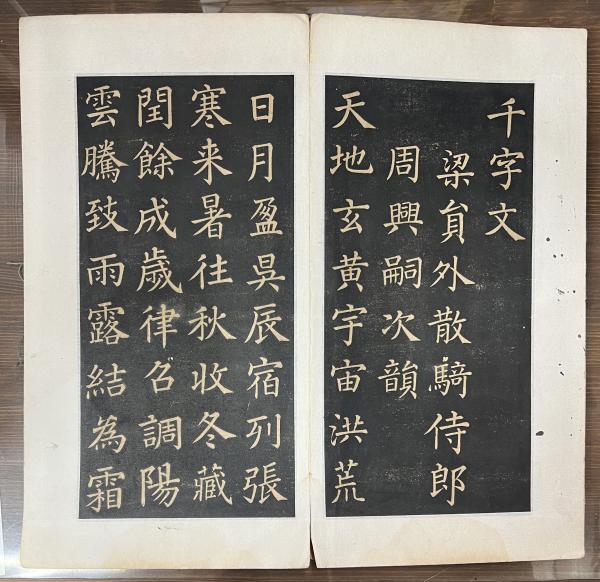 千字文
梁貟外散騎侍郎
周興嗣次韻
天地玄黄宇宙洪荒
日月盈昃辰宿列張
寒来暑往秋收冬藏
閏餘成歲律召調陽
雲騰致雨露結為霜